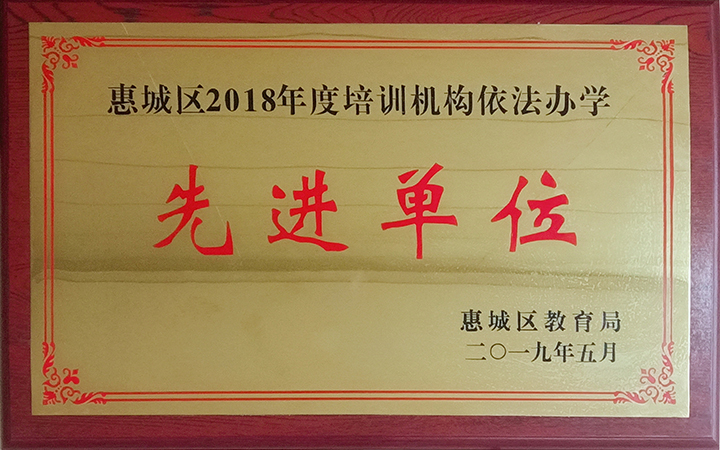 惠城区2018年度培训机构依法办学
先进单位
惠城区教育局
二〇一九年五月